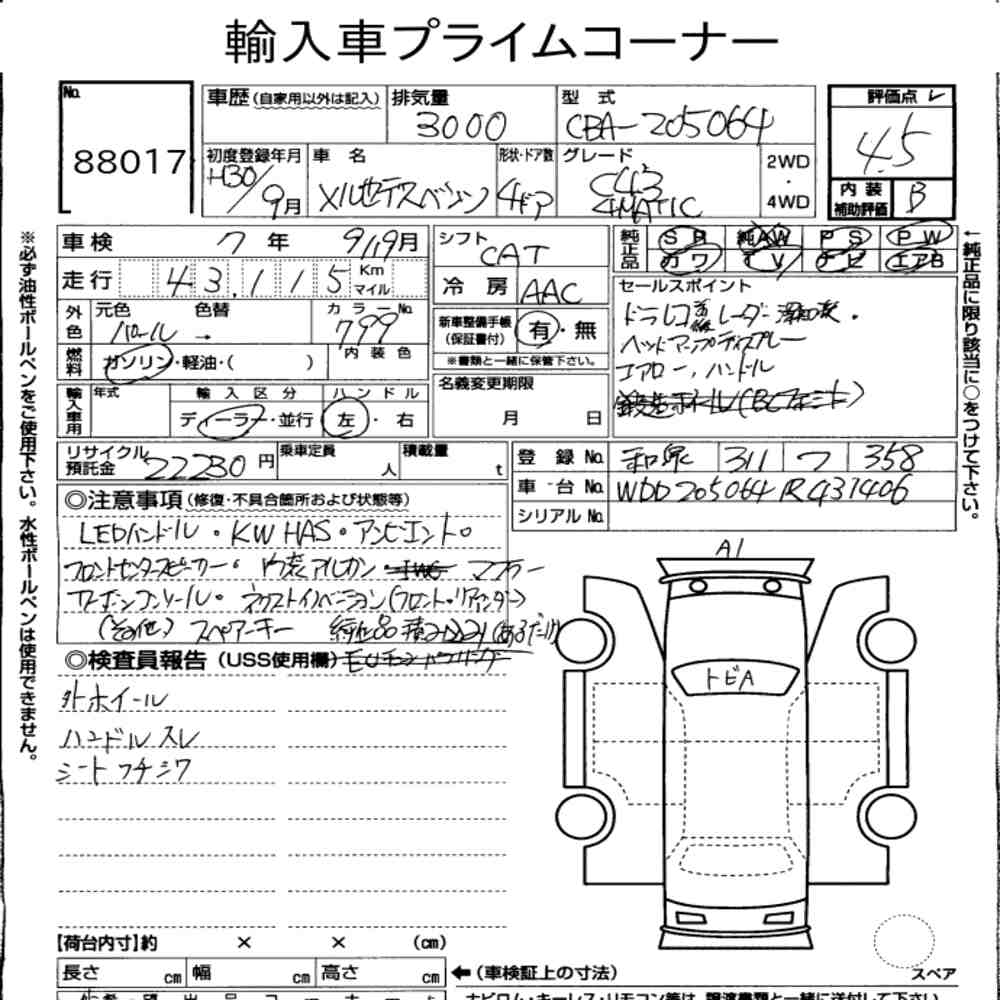 輸入車プライムコーナー
No. 88017
車歴(自家用以外は記入)
排気量 3000
型式 CBA-205064
評価点 4.5
内装補助評価 B
初度登録年月 H30/9月
車名 メルセデスベンツ
形状・ドア数 4ドア
グレード C43 4MATIC
2WD・4WD
車検 7年 9/19月
シフト CAT
純正品 SR 純AW PS PW
カワ TV ナビ エアB
走行 43,115 Km マイル
冷房 AAC
セールスポイント
外色 元色 パール → 色替 カラーNo. 799
新車整備手帳(保証書付) 有・無
※書類と一緒に保管下さい。
ヘッドアップディスプレー
エアロー、ハンドル
燃料 ガソリン・軽油・( ) 内装色
名義変更期限 月 日
輸入車用 年式 輸入区分 ディーラー・並行 ハンドル 左・右
リサイクル預託金 22230円 乗車定員 人 積載量 t
登録No. 和泉 311 フ 358
車台No. WDD205064 1R431406
シリアルNo.
◎注意事項(修復・不具合箇所および状態等)
LEDハンドル・KW HAS・アンビエント。
フロントセンタースピーカー・ マフラー
カーボンコンソール・
(その他) スペアーキー 純正品積み込み(あるだけ)
◎検査員報告(USS使用欄)
外ホイール
ハンドルスレ
シートフチシワ
A1
トビA
【荷台内寸】約 × × (cm)
長さ cm 幅 cm 高さ cm ←(車検証上の寸法)
スペア
※必ず油性ボールペンをご使用下さい。水性ボールペンは使用できません。
←純正品に限り該当に○をつけて下さい。